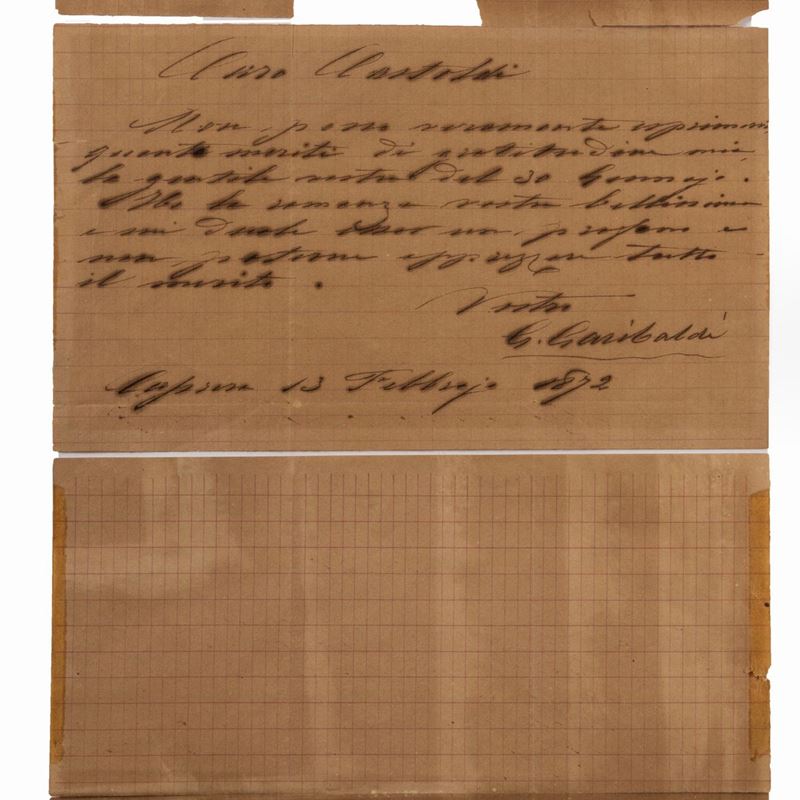 Caro Castoldi
Non posso veramente esprimere
quanto meriti di gratitudine mia
la gentile vostra del 30 Gennajo.
Ebbi la romanza vostra bellissima
e mi duole esser un profano e
non poterne apprezzare tutto
il merito.
Vostro
G. Garibaldi
Caprera 13 Febbrajo 1872